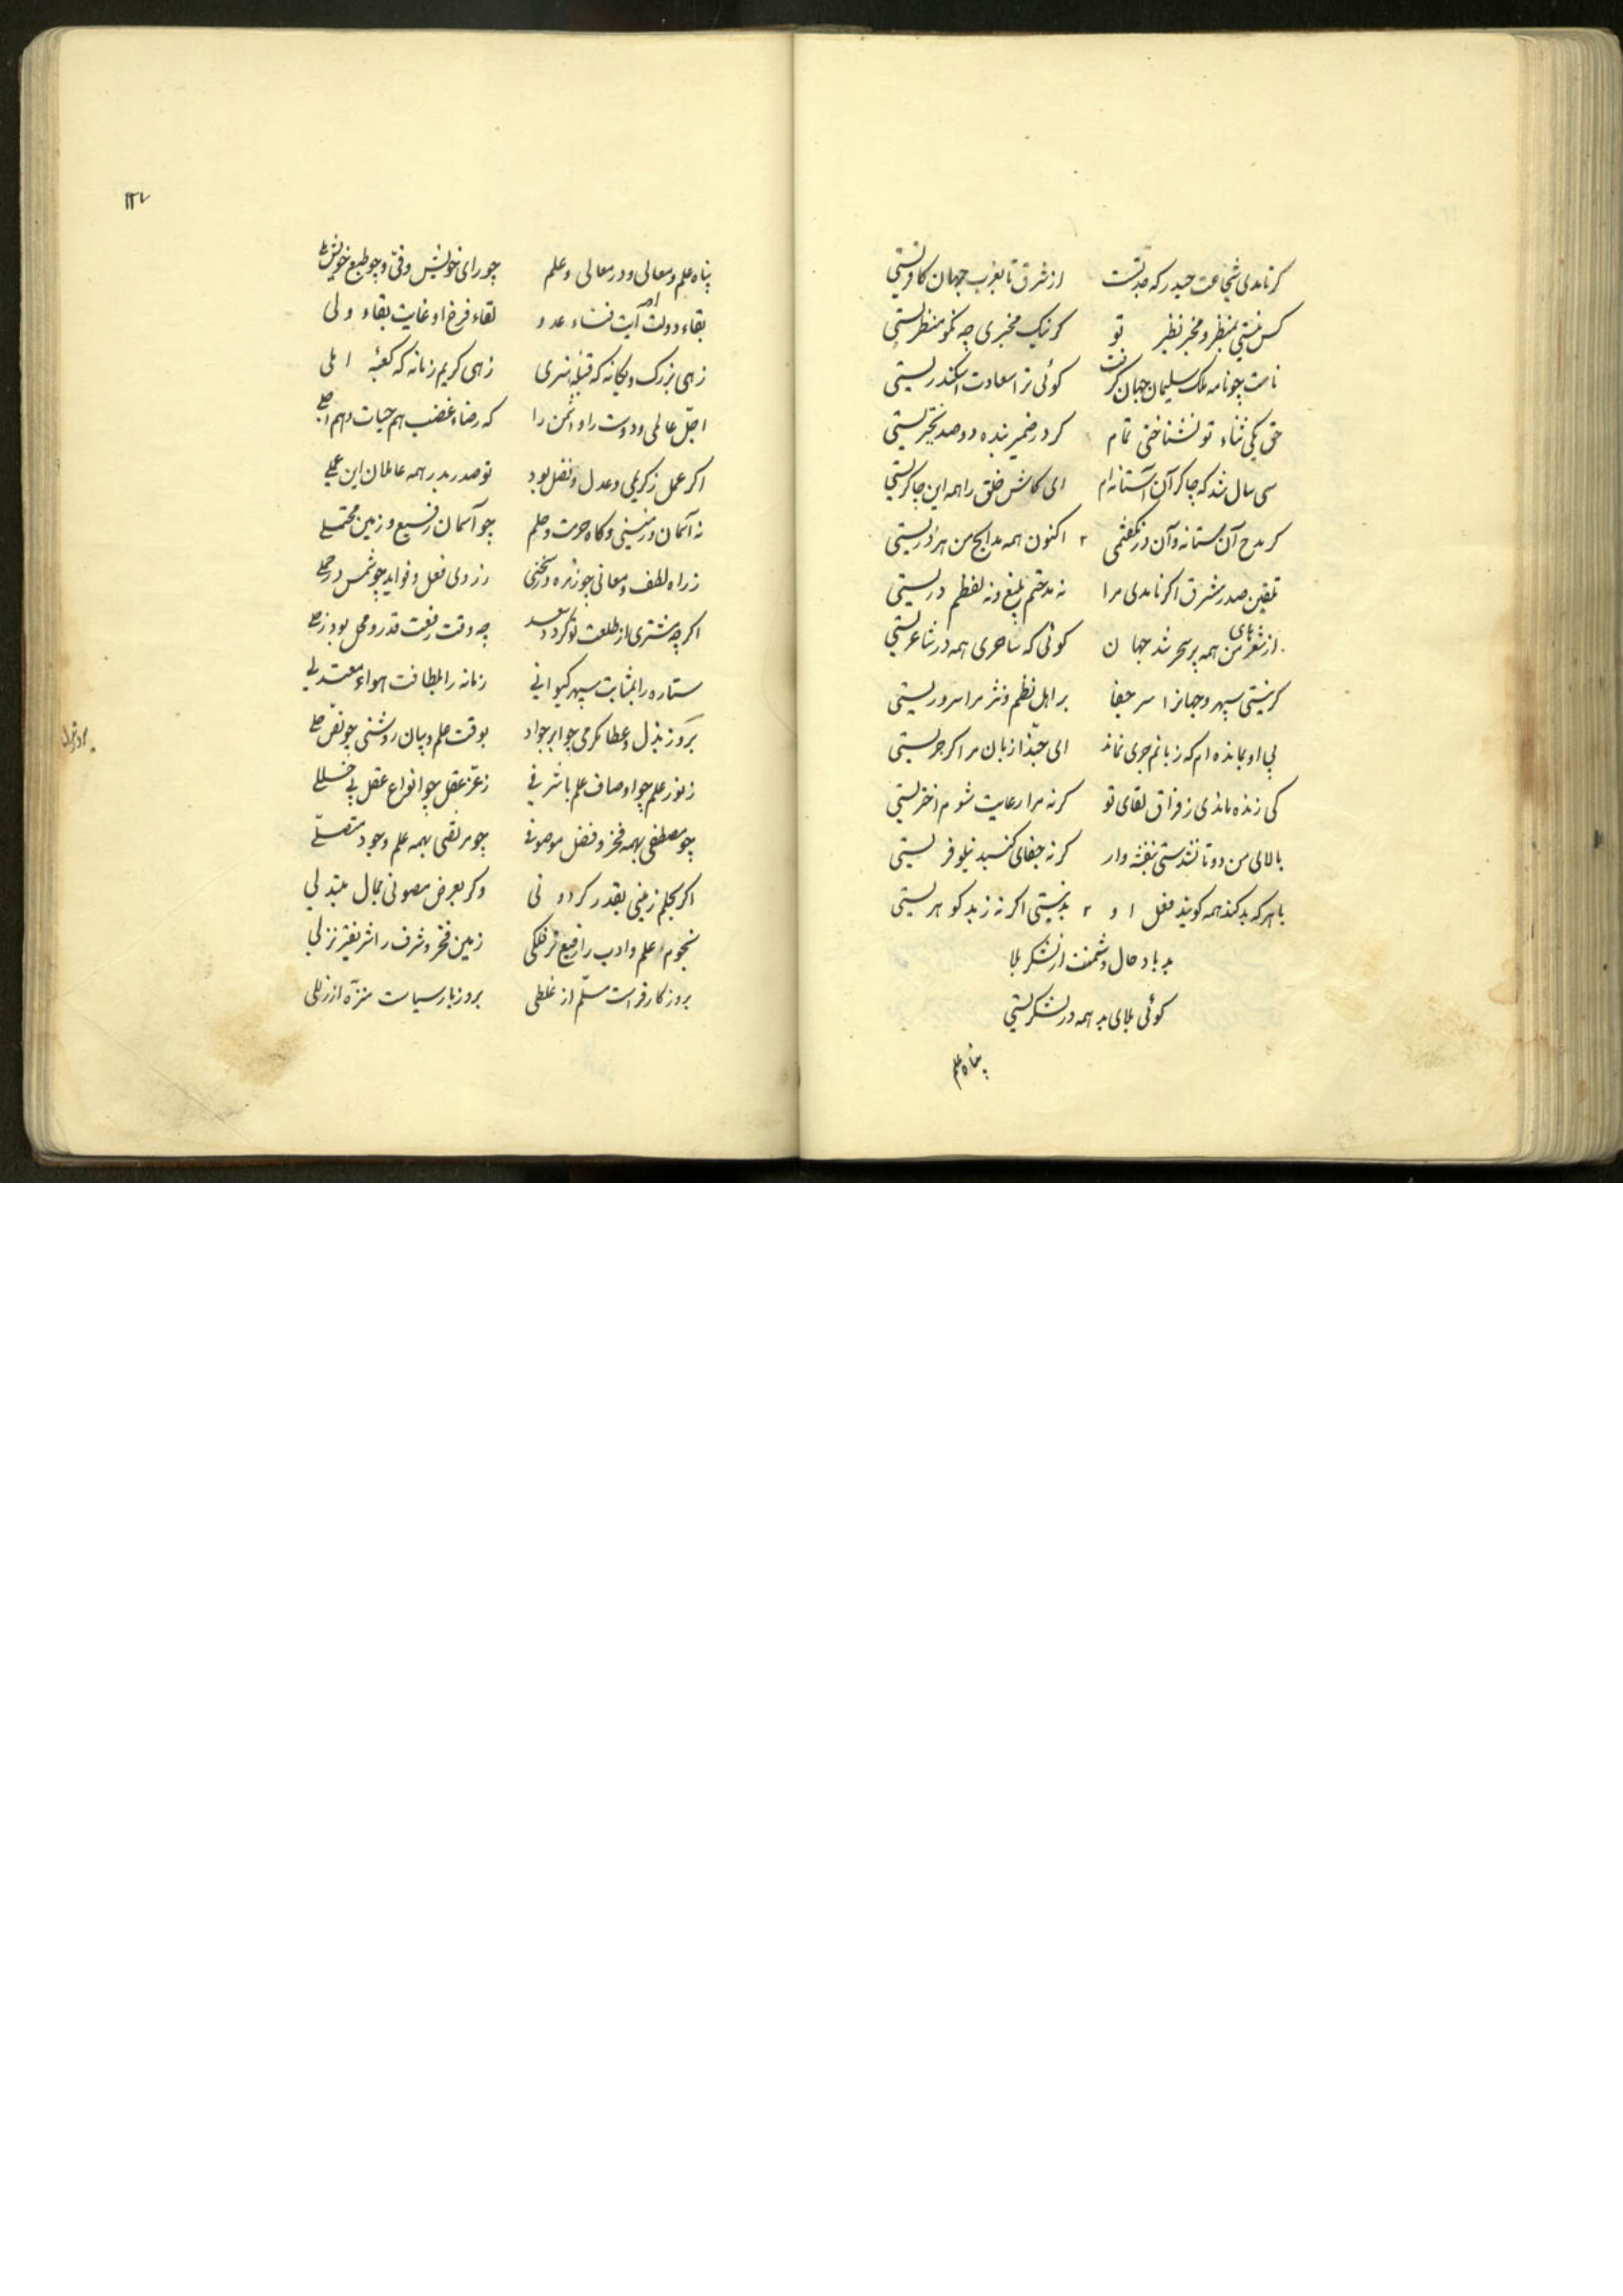 کر نامدی شجاعت حیدر که جدتست از شرق تا بغرب جهان کافرستی
کس نیستی بمنظر و مخبر نظیر تو کر نیک مخبری چه نکو منظرستی
نامت چو نامه ملک سلیمان جهان کرفت کوئی ترا سعادت اسکندرستی
حق یکی ثناء تو نشناختی تمام کر در ضمیر بنده دو صد
سی سال شد که چاکر آن آستانه ام ای کاش خلق را همه این چاکرستی
کر مدح آن ستانه و آن در نکفتمی اکنون همه مدایح من هر درستی
تلقین صدر مشرق اکر نامدی مرا نه مدحتم بلیغ و نه لفظم درستی
از شعرهای من همه پر سحر شد جهان کوئی که ساحری همه در شاعرستی
کر نیستی سپهر و جهانرا سر جفا بر اهل نظم و نثر مرا سرورستی
بی او بمانده ام که زبانم جری نماند ای حبذا زبان مرا کر جرستی
کی زنده ماندی ز فراق لقای تو کر نه مرا رعایت شوم اخترستی
بالای من دوتا نشدستی بنفشه وار کر نه جفای کنبد نیلوفرستی
با هر که بد کند همه کویند فعل او بد نیستی اکر نه ز بد کوهرستی
بد باد حال دشمنت از لشکر بلا
کوئی بلای بد همه در لشکرستی
پناه علم
۱۲۷
پناه علم و معالی و در معالی و علم چو رای خویش وفی و چو طبع خویش
بقاء دولت او آیت فناء عدو لقاء فرخ او غایت بقاء ولی
زهی بزرک و یکانه که قبله هنری زهی کریم زمانه که کعبه املی
اجل عالمی و دوست را و دشمن را که رضا و غضب هم حیات و هم اجلی
اکر عمل ز کریمی و عدل و فضل بود تو صدر بدر همه عاملان این عملی
نه آسمان و زمینی و کاه حرمت و حلم چو آسمان رفیع و زمین محتملی
ز راه لطف و معانی چو زهره در سخنی ز روی فعل و فواید چو شمس در حملی
اکر چه مشتری از طلعت تو کردد سعد چه وقت رفعت قدر و محل بود زحلی
ستاره را بمثابت سپهر کیوانی زمانه را بلطافت هواء معتدلی
بروز بذل و عطا مکرمی چو ابر جواد بوقت علم و بیان روشنی چو نص جلی
ز نور علم چو اوصاف علم با شرفی ز عز عقل چو انواع عقل بی خللی
چو مصطفی بهمه فخر و فضل موصوفی چو مرتضی بهمه علم و جود متصلی
اکر بحلم زمینی بقدر کردونی وکر بعرض مصونی بمال مبتذلی
نجوم علم و ادب را رفیع تر فلکی زمین فخر و شرف را شریفتر نزلی
بروز کار فراست مسلم از غلطی بروز بار سیاست منزه از زللی